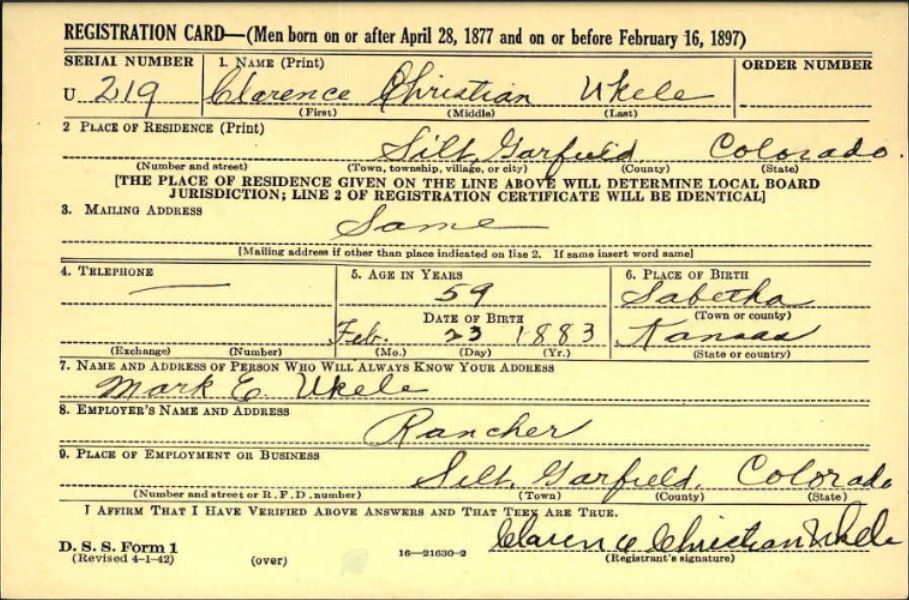 REGISTRATION CARD—(Men born on or after April 28, 1877 and on or before February 16, 1897)
SERIAL NUMBER 1. NAME (Print) ORDER NUMBER
U 219 Clarence Christian Ukele
(First) (Middle) (Last)
2 PLACE OF RESIDENCE (Print)
Silt, Garfield, Colorado.
(Number and street) (Town, township, village, or city) (County) (State)
[THE PLACE OF RESIDENCE GIVEN ON THE LINE ABOVE WILL DETERMINE LOCAL BOARD
JURISDICTION; LINE 2 OF REGISTRATION CERTIFICATE WILL BE IDENTICAL]
3. MAILING ADDRESS
Same
[Mailing address if other than place indicated on line 2. If same insert word same]
4. TELEPHONE 5. AGE IN YEARS 6. PLACE OF BIRTH
59 Sabetha
DATE OF BIRTH (Town or county)
Feb. 23 1883 Kansas
(Exchange) (Number) (Mo.) (Day) (Yr.) (State or country)
7. NAME AND ADDRESS OF PERSON WHO WILL ALWAYS KNOW YOUR ADDRESS
Mark E. Ukele
8. EMPLOYER'S NAME AND ADDRESS
Rancher
9. PLACE OF EMPLOYMENT OR BUSINESS
Silt, Garfield, Colorado
(Number and street or R. F. D. number) (Town) (County) (State)
I AFFIRM THAT I HAVE VERIFIED ABOVE ANSWERS AND THAT THEY ARE TRUE.
Clarence Christian Ukele
D. S. S. Form 1 16—21630-2 (Registrant's signature)
(Revised 4-1-42) (over)